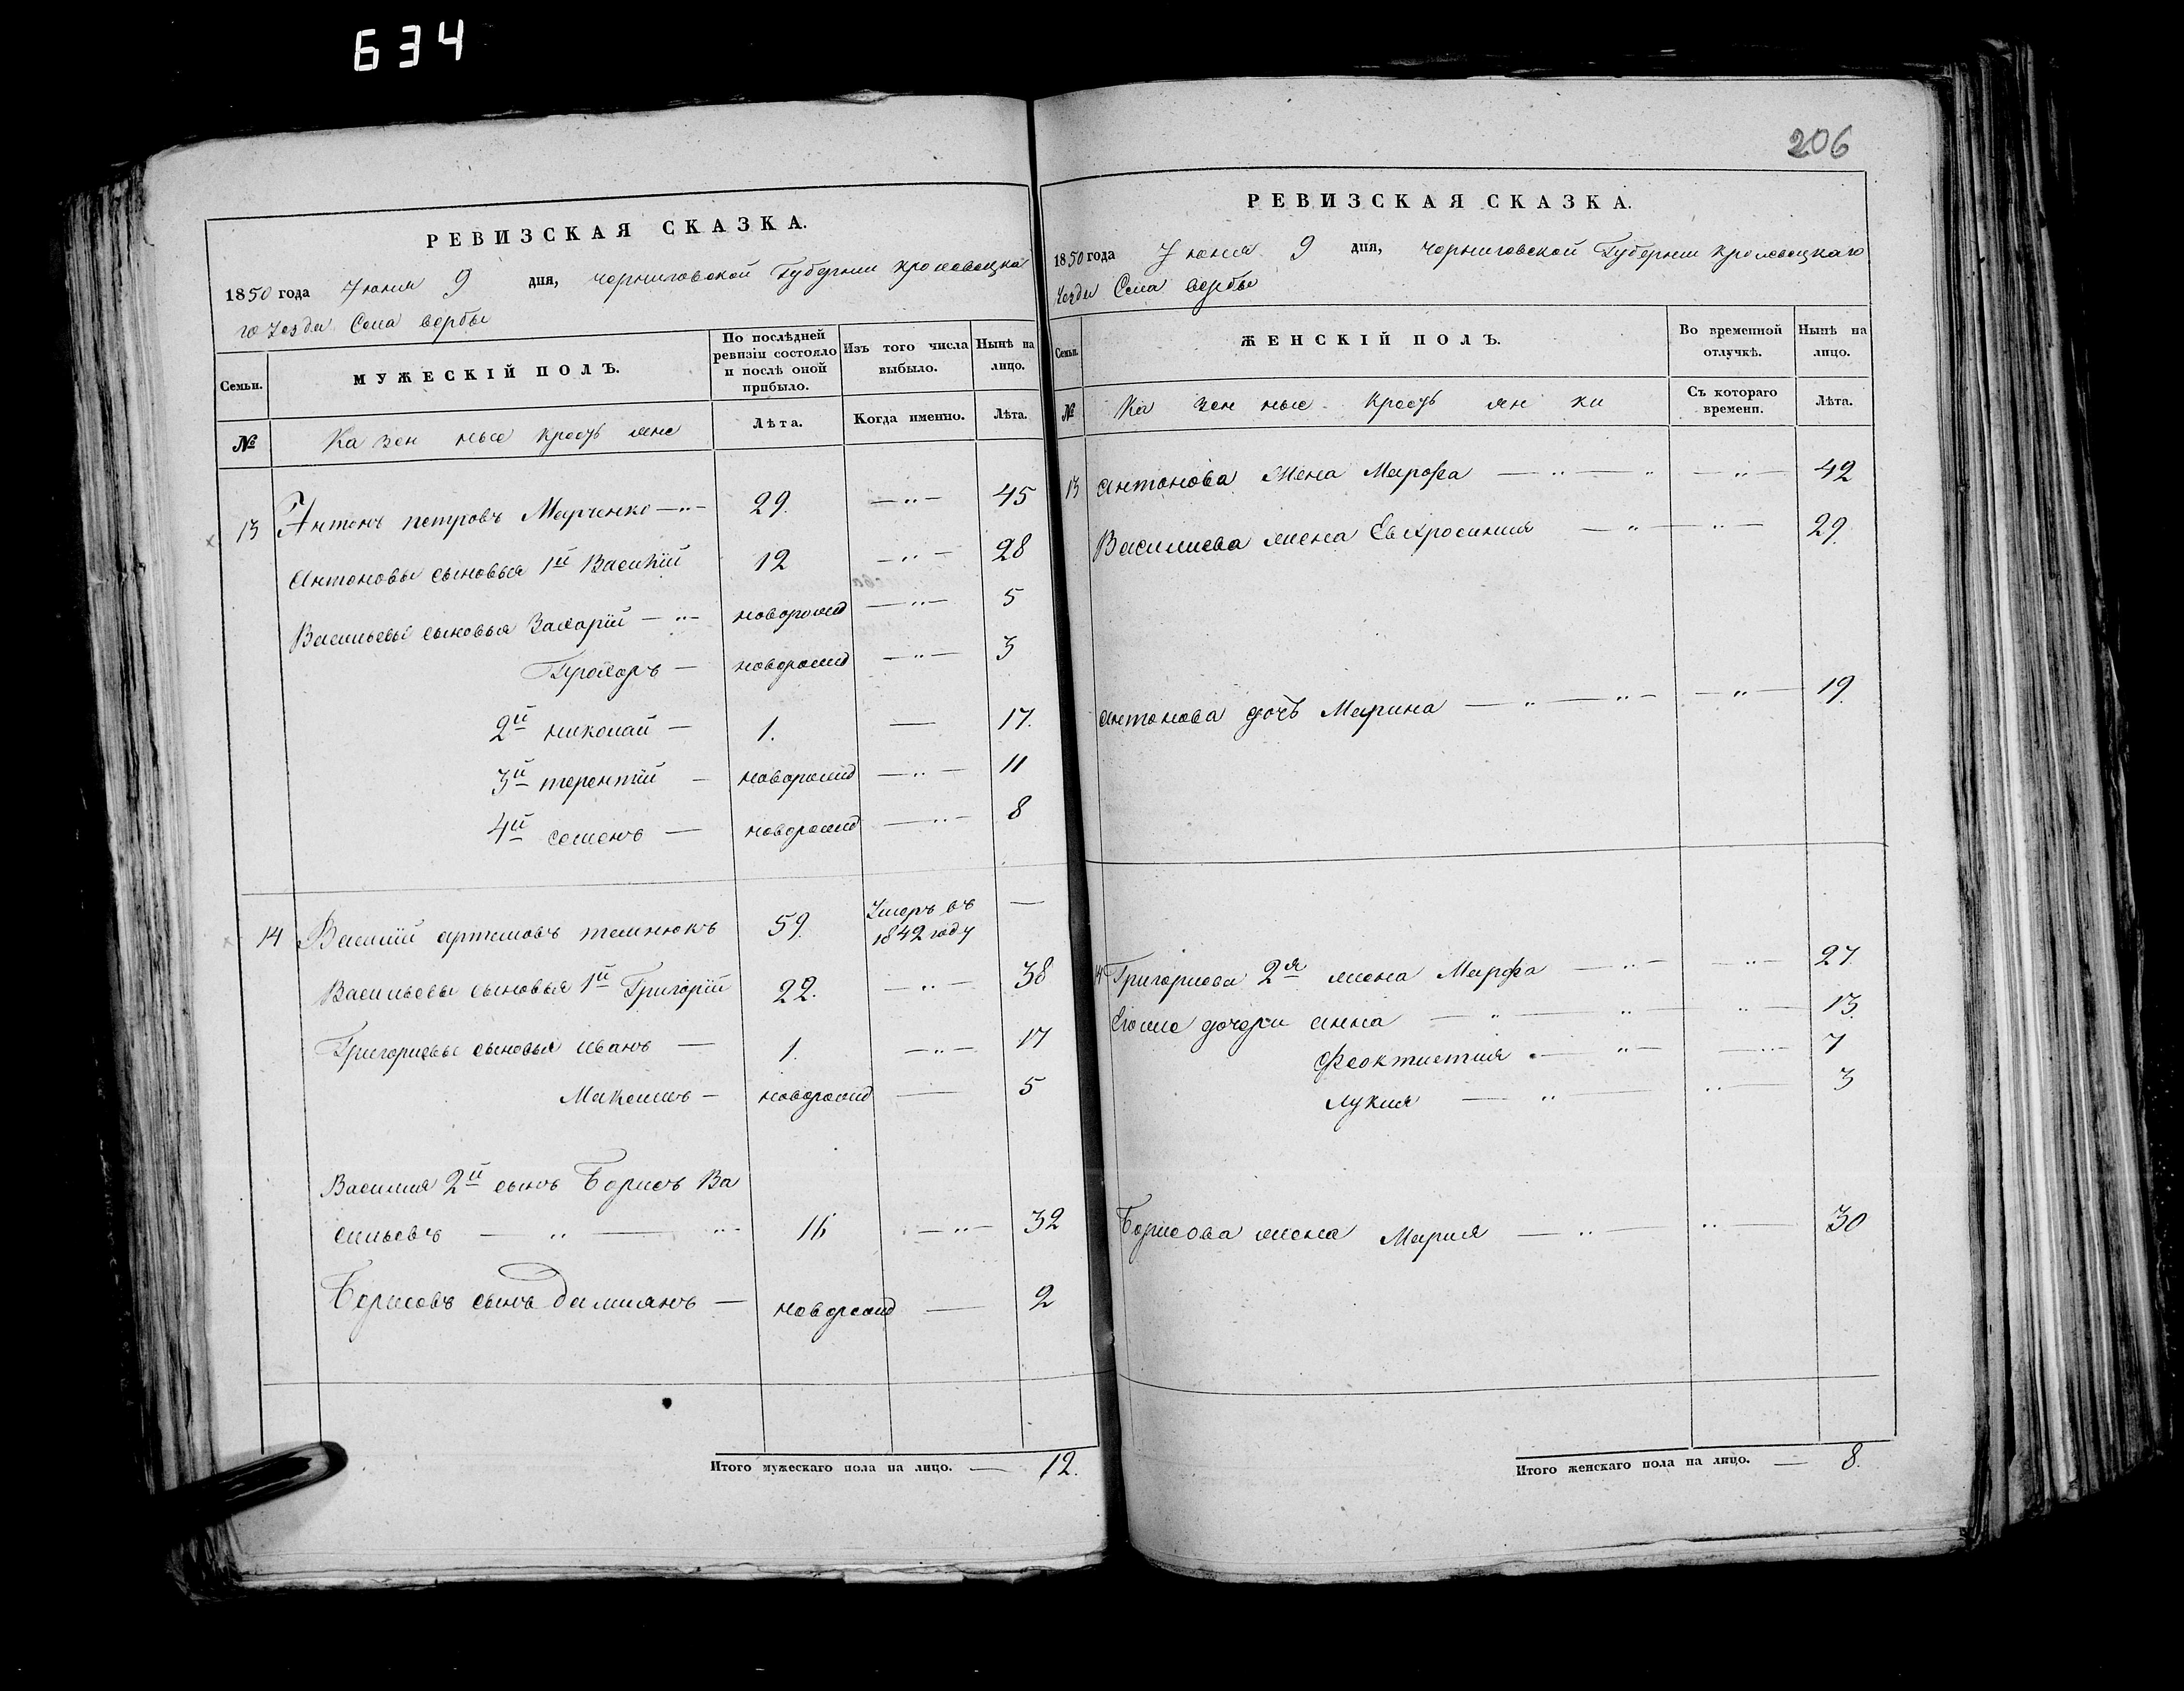 634
206
РЕВИЗСКАЯ СКАЗКА.
1850 года Июня 9 дня, Черниговской Губернии Кролевецка
го Уезда Села вербы
Семьи.
МУЖЕСКІЙ ПОЛЪ.
По послѣдней ревизіи состояло и послѣ оной прибыло.
Изъ того числа выбыло.
Нынѣ на лицо.
№
Казенные Крестьяне
Лѣта.
Когда именно.
Лѣта.
13 Антонъ петровъ Марченко —"— 29. —"— 45
Антоновы сыновья 1й Василій 12 —"— 28
Васильевы сыновья Захарій —"— новорожд —"— 5
Прохоръ — новорожд —"— 3
2й николай — 1. — 17.
3й терентій — новорожд —"— 11
4й семенъ — новорожд —"— 8
14 Василій артемовъ темнюкъ 59. Умеръ въ 1842 году —
Васильевы сыновья 1й Григорій 22. —"— 38
Григориевы сыновья иванъ — 1. —"— 17
Максимъ — новорожд — 5
Василия 2й сынъ Борисъ Ва
сильевъ — " — " 16 —"— 32
Борисовъ сынъ дамианъ — новорожд — 2
Итого мужескаго пола на лицо. — 12.
РЕВИЗСКАЯ СКАЗКА.
1850 года Июня 9 дня, Черниговской Губернии Кролевецкаго
Уезда Села вербы
Семьи.
ЖЕНСКІЙ ПОЛЪ.
Во временной отлучкѣ.
Нынѣ на лицо.
№
Казенные Крестьянки
Съ котораго времени.
Лѣта.
13 Антонова Жена Марфа — " — " —"— 42
Василиева жена Евхросиния — " —"— 29.
Антонова дочь Марина — " — " — —"— 19.
14 Григориева 2я жена Марфа —"— —"— 27.
Егоже дочери анна — " — " — " — 13.
Феоктистия — " — —"— 7
лукия — " — " — 3
Борисова жена Мария — " — " — 30
Итого женскаго пола на лицо. — 8.